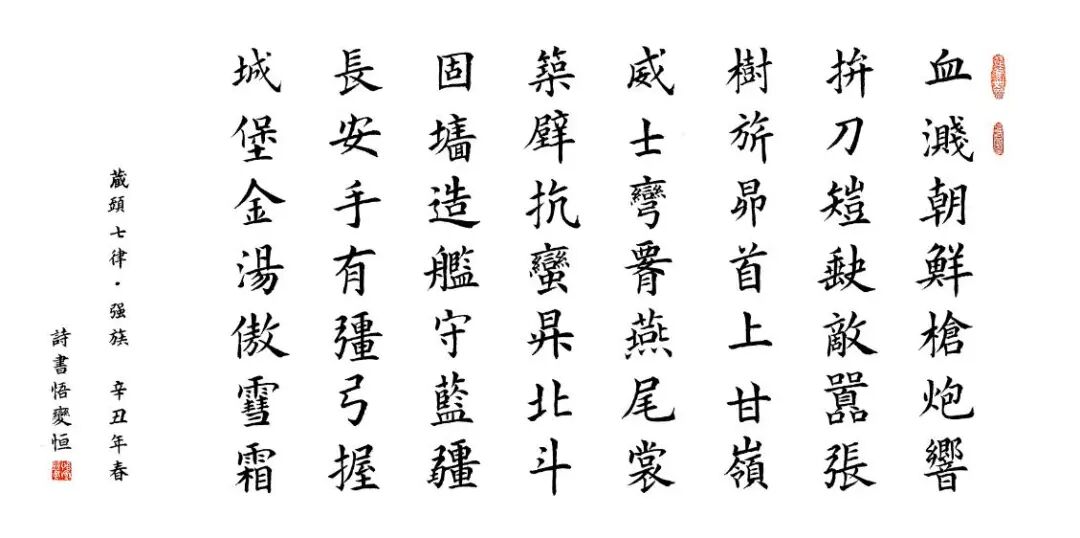 血濺朝鮮槍炮響
拚刀敵囂張
樹旂昂首上甘嶺
威士彎燕尾裳
築壁抗蠻昇北斗
固墻造艦守藍疆
長安手有彊弓握
城堡金湯傲雪霜
藏頭七律·强族 辛丑年春
詩書悟變恒